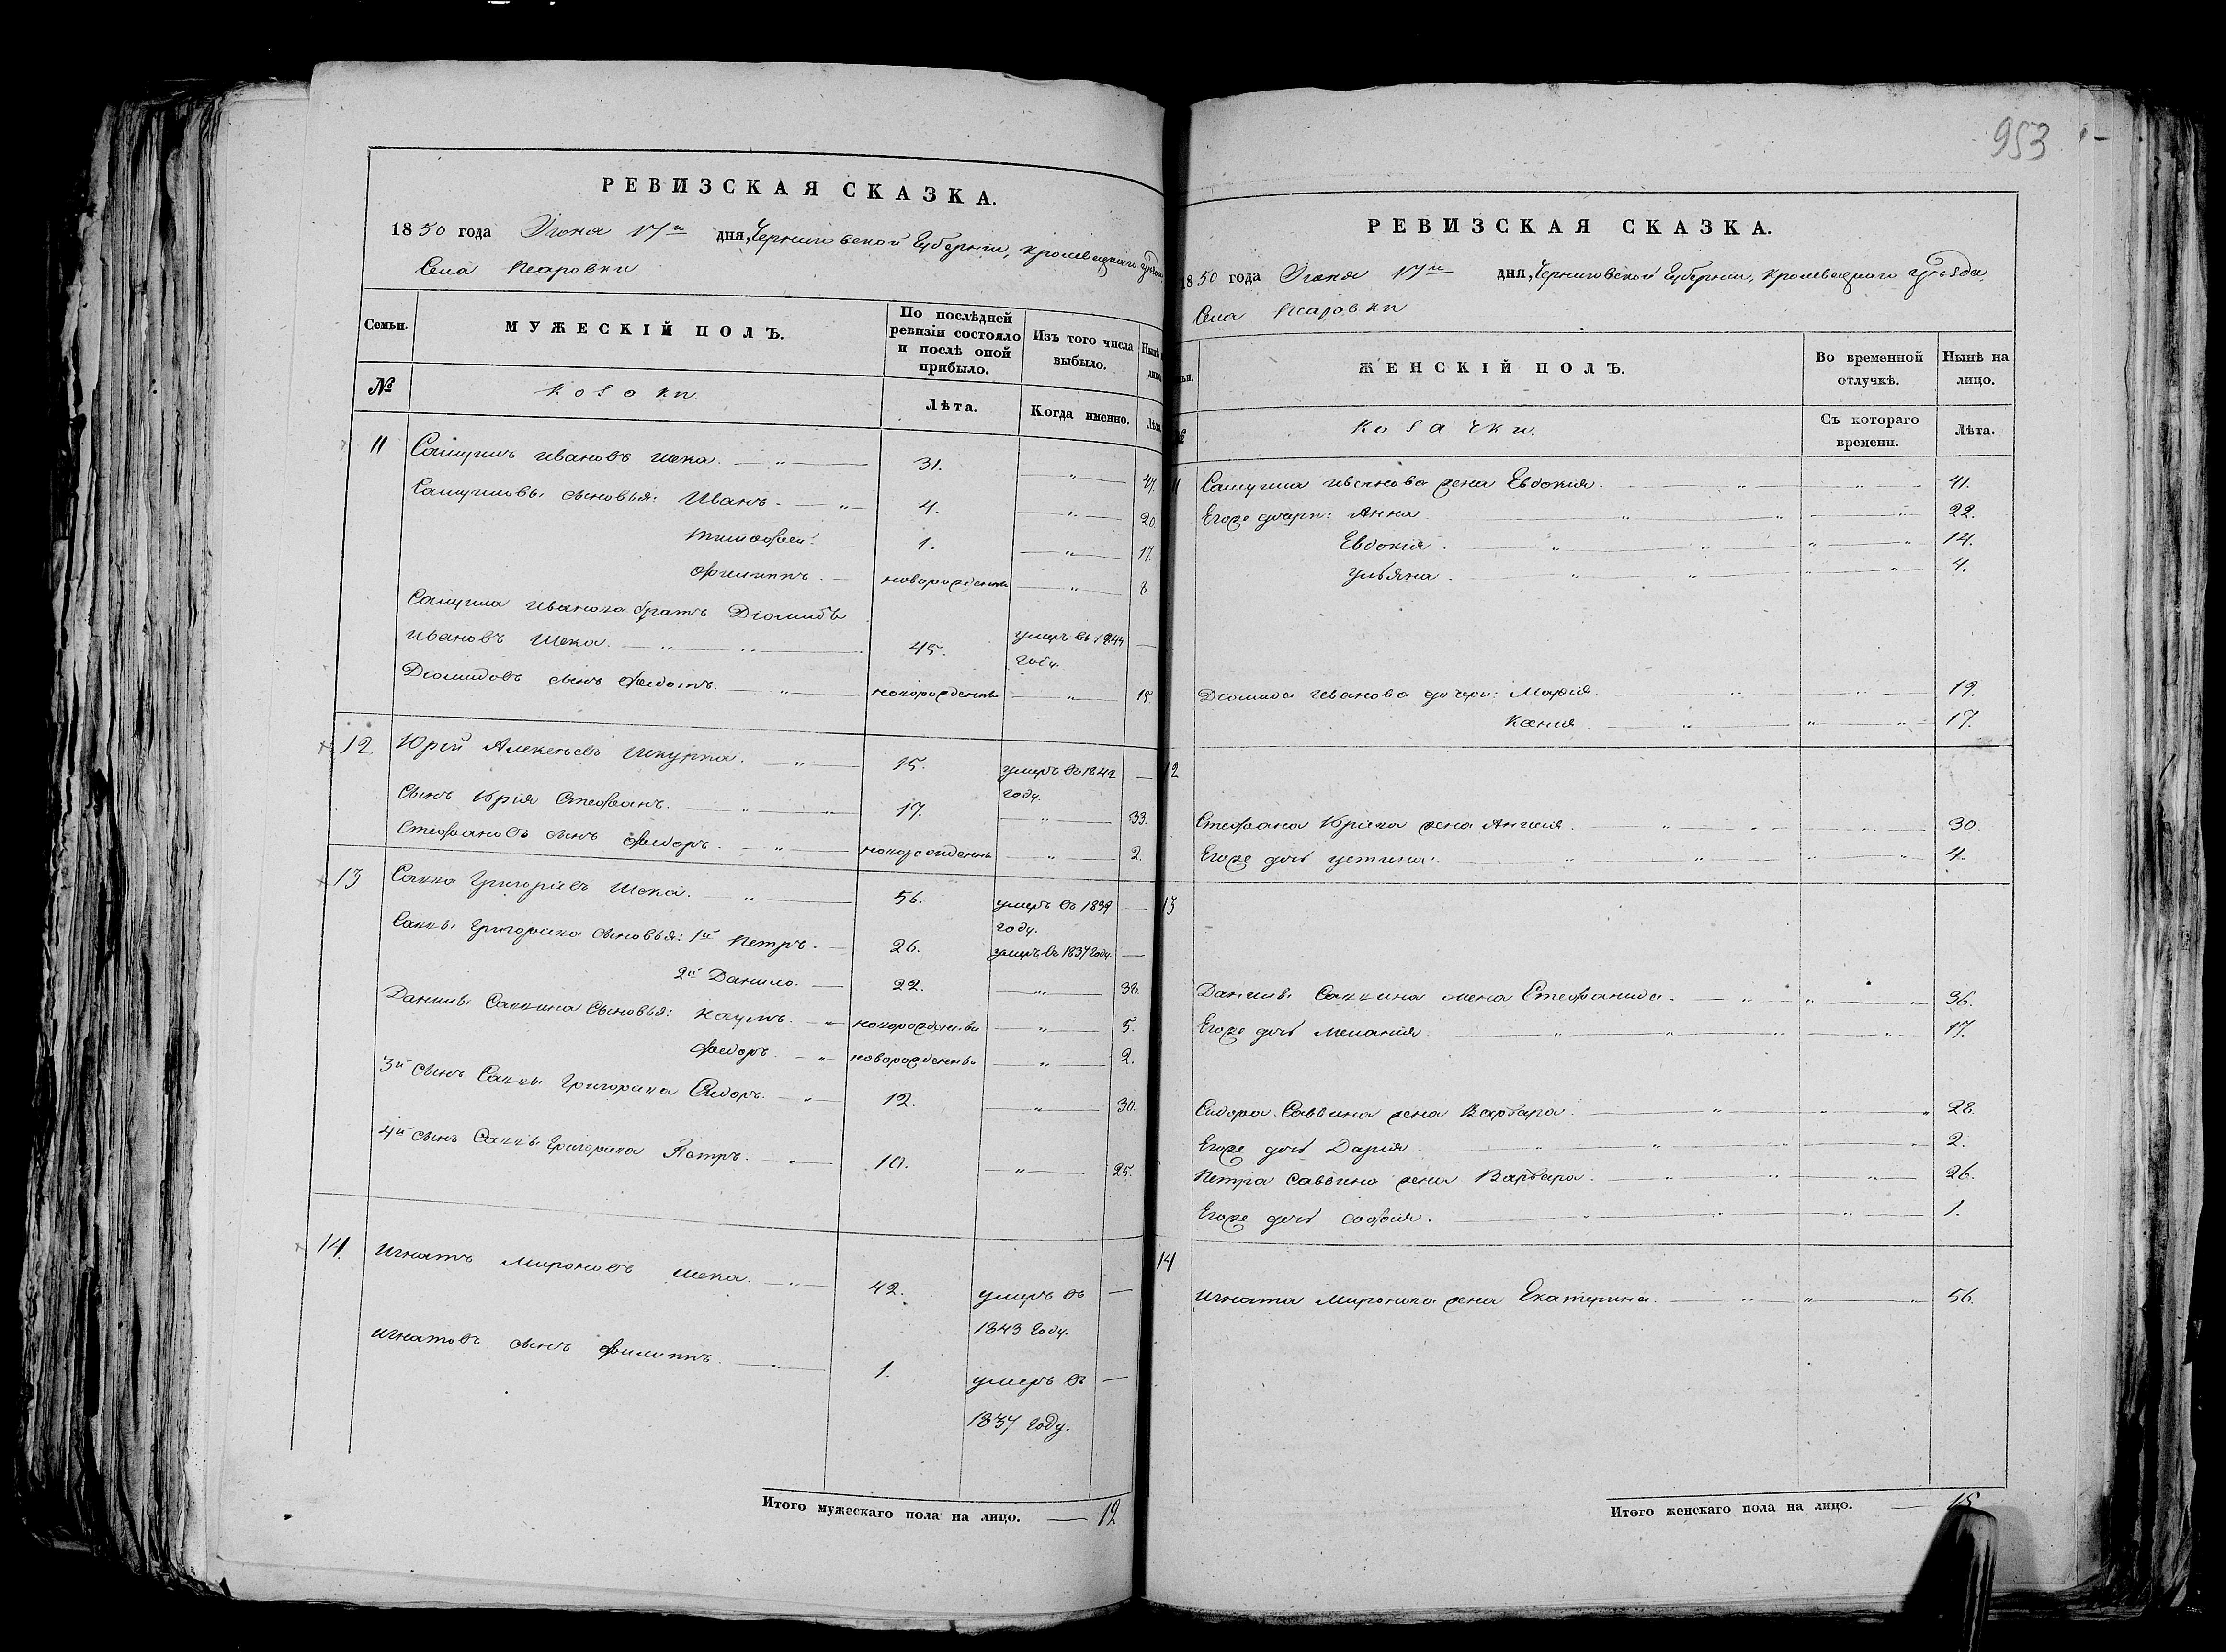 РЕВИЗСКАЯ СКАЗКА.
1850 года Июня 17го дня, Черниговской Губернии, Кролевецкаго уѣзда
Села
Семьи.
МУЖЕСКІЙ ПОЛЪ.
По послѣдней ревизіи состояло и послѣ оной прибыло.
Изъ того числа выбыло.
Нынѣ на лицо.
№
Козаки.
Лѣта.
Когда именно.
Лѣта.
11 Самуилъ Ивановъ Шека. — „ — 31. — „ — 47.
Самуиловы сыновья: Иванъ. — „ — 4. — „ — 20.
Тимофей. — 1. — „ — 17.
Филиппъ. — новорожденный — „ — 8.
Самуила Иванова братъ Діомидъ
Ивановъ Шека. — „ — 45. умеръ въ 1844 году. —
Діомидовъ сынъ Федотъ. — „ — новорожденный — „ — 15.
12 Юрій Алексѣевъ Шкурка. — „ — умеръ въ 1842 году. —
Сынъ Юрія Стефанъ. — „ — 17. — „ — 33.
Стефановъ сынъ Федоръ. — „ — новорожденный — „ — 2.
13 Савва Григорьевъ Шека. — „ — 56. умеръ въ 1839 году. —
Саввы Григорьева сыновья: 1й Петръ. — 26. умеръ въ 1837 году. —
2й Данило. — 22. — „ — 38.
Данилы Саввина сыновья: Наумъ. — „ новорожденный — „ — 5.
Федоръ. — „ новорожденный — „ — 2.
3й сынъ Саввы Григорьева Сидоръ. — „ — 12. — „ — 30.
4й сынъ Саввы Григорьева Петръ. — „ — 10. — „ — 25.
14. Игнатъ Мироновъ Шека. — „ — 42. умеръ въ 1843 году. —
Игнатовъ сынъ Филиппъ. — 1. умеръ въ 1837 году. —
Итого мужескаго пола на лицо. — 12
953
РЕВИЗСКАЯ СКАЗКА.
1850 года Июня 17го дня, Черниговской Губернии, Кролевецкаго уѣзда,
Села
ЖЕНСКІЙ ПОЛЪ.
Во временной отлучкѣ.
Нынѣ на лицо.
Козачки.
Съ котораго времени.
Лѣта.
11 Самуила Иванова жена Евдокия. — „ — „ — 41.
Егоже дочери: Анна — „ — „ — 22.
Евдокія. — „ — „ — 14.
Ульяна. — „ — „ — 4.
Діомида Иванова дочери: Марія. — „ — 19.
Ксенія. — „ — „ — 17.
12
Стефана Юріева жена — „ — 30.
Егоже дочь Устинья. — „ — „ — 4.
13
Данилы Саввина жена Стефанида. — „ — „ — 36.
Егоже дочь Меланія — „ — „ — 17.
Сидора Саввина жена Варвара. — „ — 28.
Егоже дочь Дарія. — „ — 2.
Петра Саввина жена Варвара. — „ — 26.
Егоже дочь Софія. — „ — 1.
14
Игната Миронова жена Екатерина. — „ — „ — 56.
Итого женскаго пола на лицо. — 15